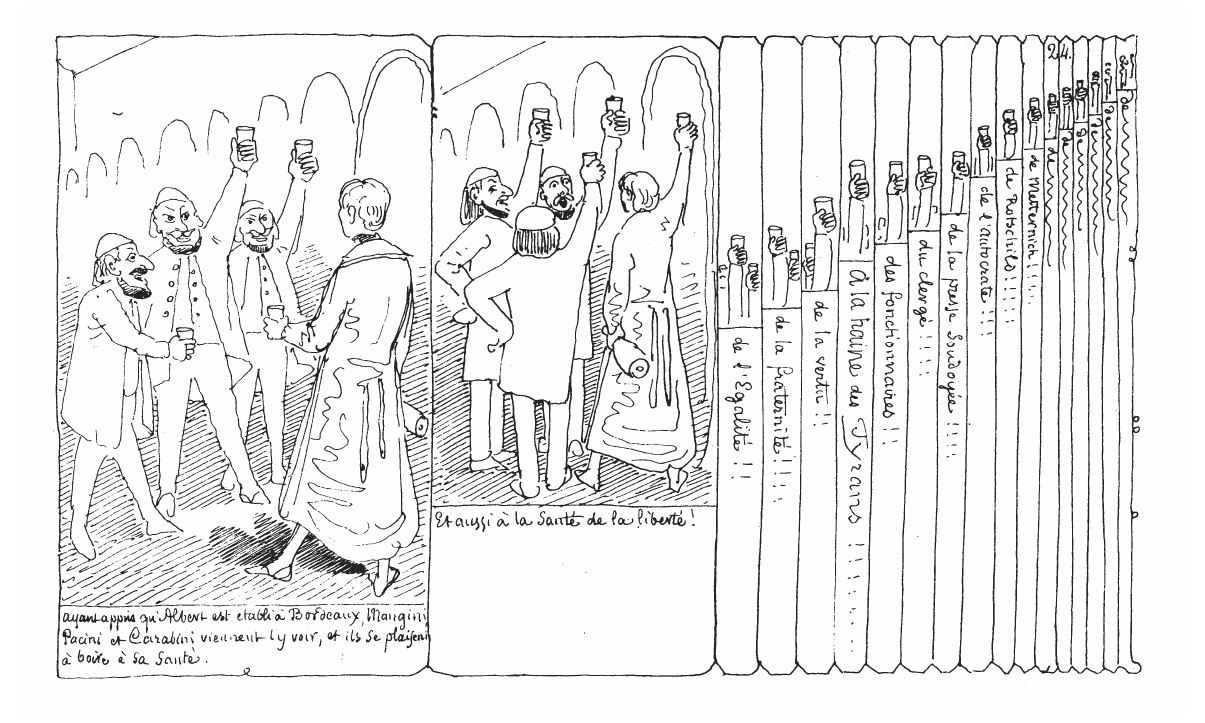 24.
ayant appris qu'Albert est établi à Bordeaux, Mangini,
Pacini et Carabini viennent l'y voir, et ils se plaisent
à boire à sa santé.
Et aussi à la Santé de la liberté !
de l'Egalité !!
de la fraternité !!!
de la vertu !!
à la haine des Tyrans !!!
des fonctionnaires !!
du clergé !!!!
de la presse Soudoyée !!!!
de l'autocrate !!!
de Rotschils !!!!!
de Metternich !!!
de
de
de
de
de
de